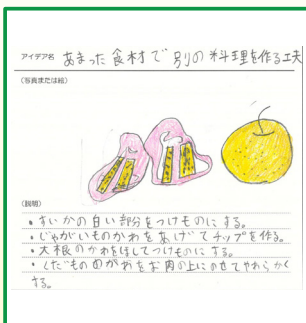 アイデア名 あまった食材で別の料理を作る工夫
(写真または絵)
(説明)
・すいかの白い部分をつけものにする。
・じゃがいものかわをあげてチップを作る。
・大根のかわをほしてつけものにする。
・くだもののかわをお肉の上にのせてやわらかく
する。